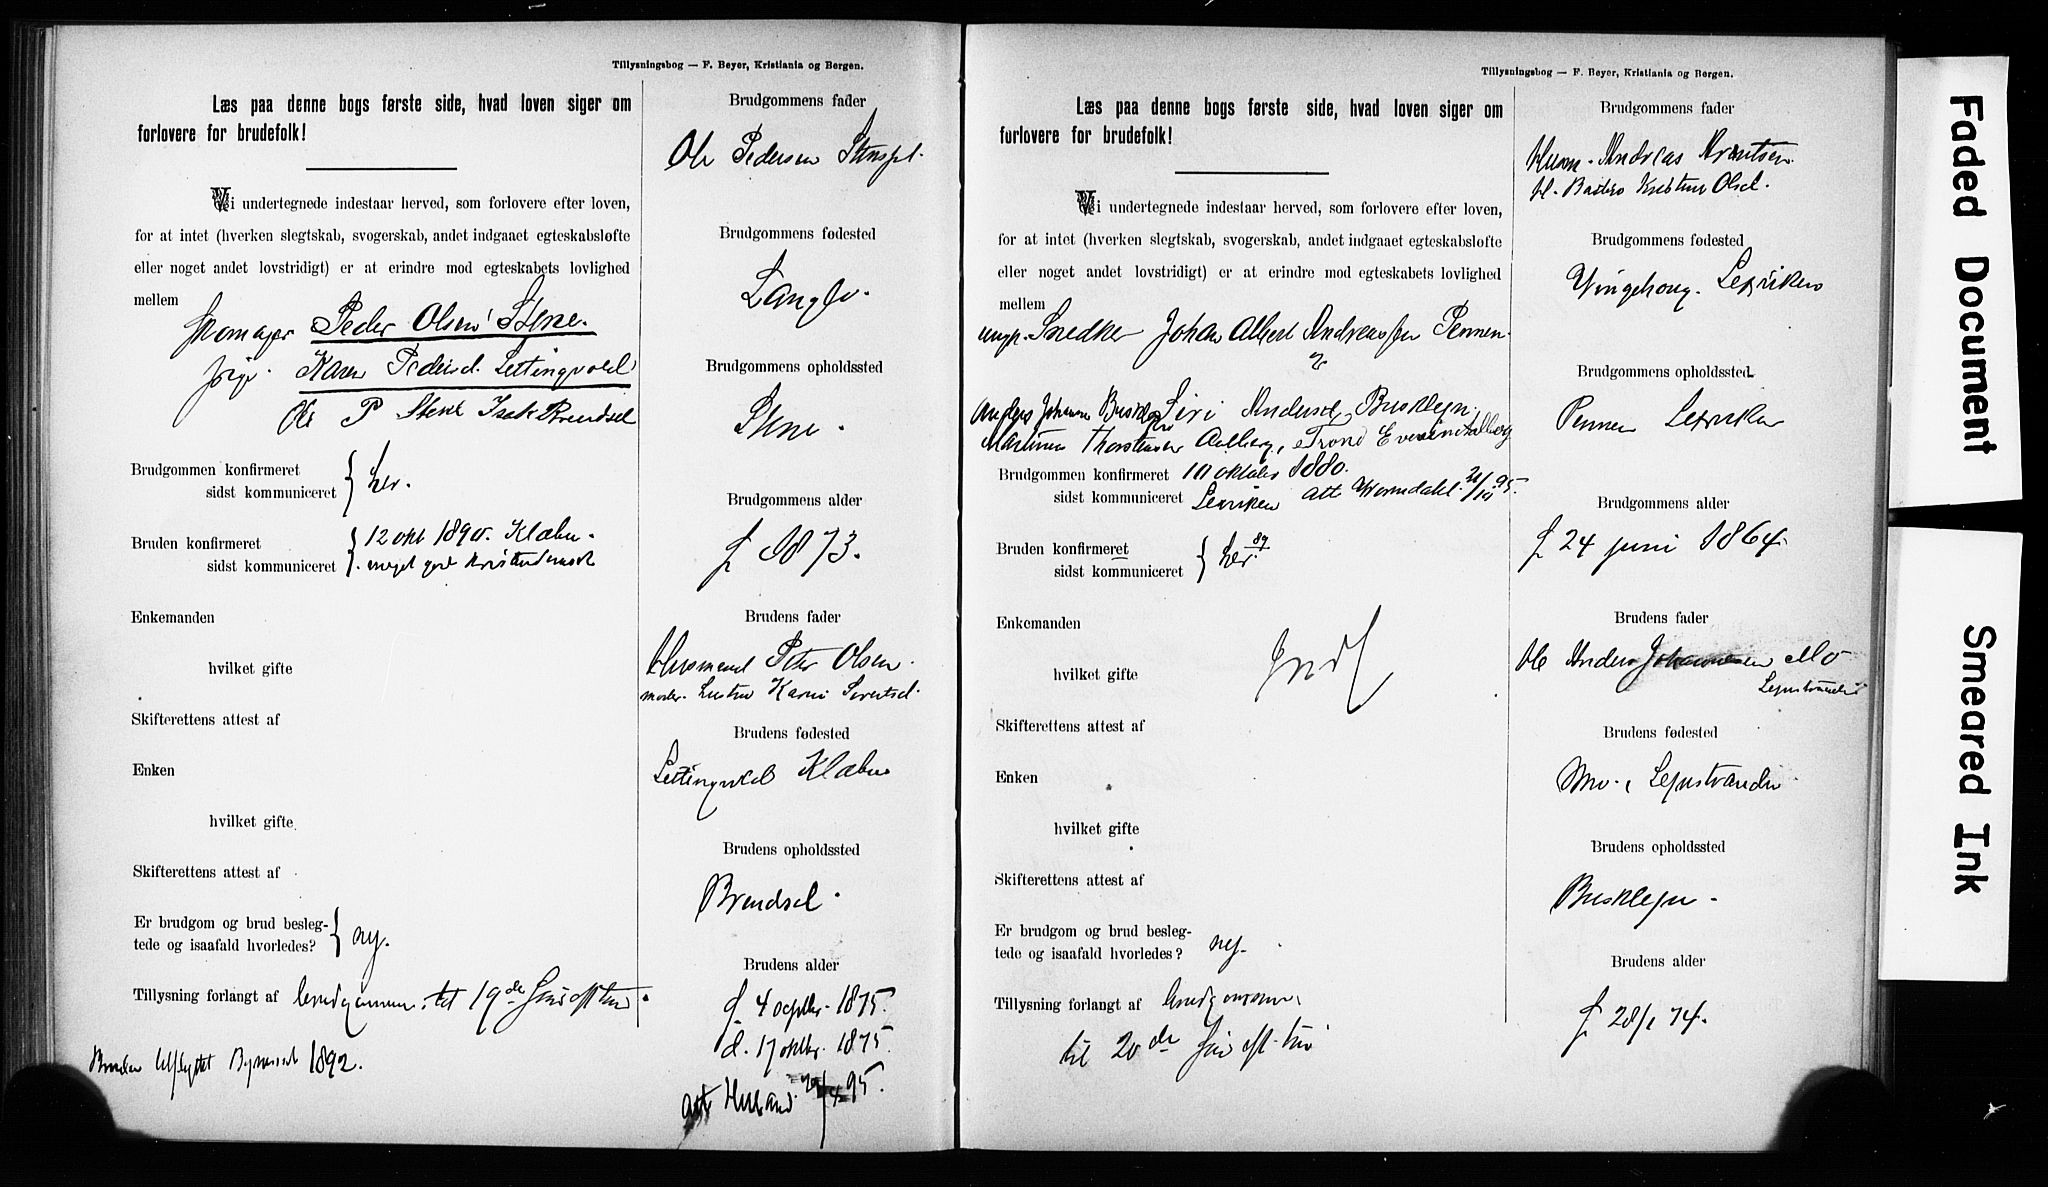 Tillysningsbog — F. Beyer, Kristiania og Bergen.
Læs paa denne bogs første side, hvad loven siger om
forlovere for brudefolk!
Vi undertegnede indestaar herved, som forlovere efter loven,
for at intet (hverken slegtskab, svogerskab, andet indgaaet egteskabsløfte
eller noget andet lovstridigt) er at erindre mod egteskabets lovlighed
mellem
Skomager Peder Olsen Stene.
pige. Karen Pedersd. Lettingvold
Ole P Stene Isak Brendsel
Brudgommen konfirmeret
sidst kommuniceret
her.
Bruden konfirmeret
sidst kommuniceret
12 okt 1890. Klæbu.
Enkemanden
hvilket gifte
Skifterettens attest af
Enken
hvilket gifte
Skifterettens attest af
Er brudgom og brud besleg-
tede og isaafald hvorledes?
ny.
Tillysning forlangt af brudgommen til 19de
Bruden Udflyttet Bynesset 1892.
Brudgommens fader
Ole Pedersen
Brudgommens fødested
Langlo.
Brudgommens opholdssted
Stene.
Brudgommens alder
f. 1873.
Brudens fader
Husmand Peter Olsen.
moder. Karen Sivertsd.
Brudens fødested
Lettingvold Klæbu
Brudens opholdssted
Brendsel.
Brudens alder
f. 4 septbr. 1875.
d. 17 oktbr. 1875.
95.
Tillysningsbog — F. Beyer, Kristiania og Bergen.
Læs paa denne bogs første side, hvad loven siger om
forlovere for brudefolk!
Vi undertegnede indestaar herved, som forlovere efter loven,
for at intet (hverken slegtskab, svogerskab, andet indgaaet egteskabsløfte
eller noget andet lovstridigt) er at erindre mod egteskabets lovlighed
mellem
ungk. Snedker Johan Albert Andreassen Pennen.
Siri Andersd. Busklejn
Martinus Thorstensen Aalberg, Trond
Brudgommen konfirmeret 10 oktober 1880.
sidst kommuniceret Lexviken att 95.
Bruden konfirmeret
sidst kommuniceret
her. 89
Enkemanden
hvilket gifte
Skifterettens attest af
Enken
hvilket gifte
Skifterettens attest af
Er brudgom og brud besleg-
tede og isaafald hvorledes? ny.
Tillysning forlangt af brudgommen
til 20de
Brudgommens fader
Husm. Andreas Arntsen.
Olsd.
Brudgommens fødested
Vingehoug. Lexviken
Brudgommens opholdssted
Pennen Lexviken
Brudgommens alder
f 24 juni 1864.
Brudens fader
Anders Johannesen Mo
Lejnstranden
Brudens fødested
Mo. i Lejnstranden
Brudens opholdssted
Busklejn.
Brudens alder
f 28/1 74.
Faded Document
Smeared Ink